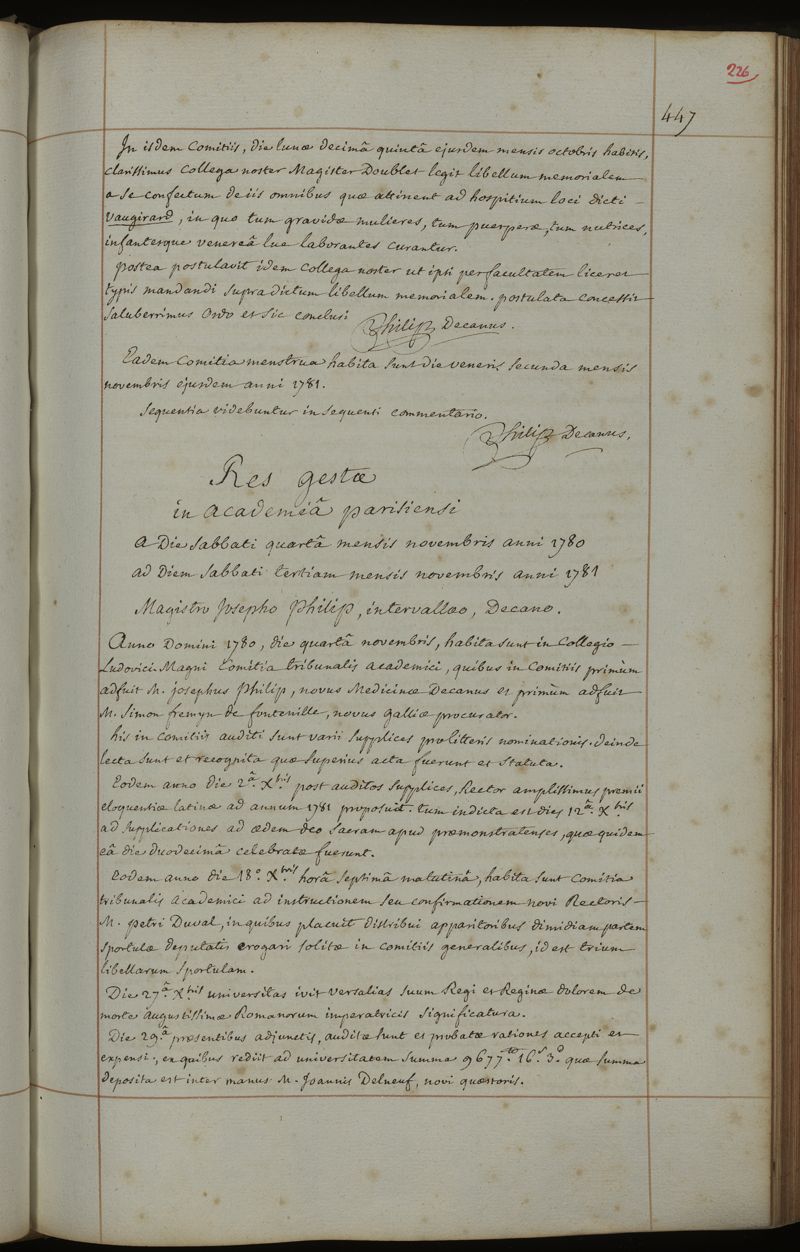 226
447
In iisdem Comitiis, die lunæ decimâ quintâ ejusdem mensis octobris habitis,
clarissimus Collega noster Magister Doublet legit libellum memorialem
a se confectum de iis omnibus quæ attinent ad hospitium loci dicti -
Vaugirard, in quo tum gravidæ mulieres, tum puerperæ, tum nutrices,
infantesque venereâ lue laborantes curantur.
postea postulavit idem Collega noster ut ipsi per facultatem liceret
typis mandandi supradictum libellum memorialem. postulata concessit
Saluberrimus Ordo et sic conclusi
Philip Decanus.
Eadem Comitia menstrua habita sunt die veneris secunda mensis
novembris ejusdem anni 1781.
Sequentia videbuntur in sequenti commentario.
Philip Decanus.
Res gestæ
in Academiâ parisiensi
A Die Sabbati quartâ mensis novembris anni 1780
ad Diem Sabbati tertiam mensis novembris anni 1781
Magistro Josepho Philip, intervallæo, Decano.
Anno Domini 1780, die quartâ novembris, habita sunt in Collegio -
Ludovici Magni Comitia tribunalis academici, quibus in Comitiis primùm
adfuit M. josephus Philip, novus Medicinæ Decanus et primùm adfuit
M. Simon fremyn de fontenille, novus galliæ procurator.
his in comitiis auditi sunt varii supplices pro litteris nominationis. deinde
lecta sunt et recognita quæ superius acta fuerunt et statuta.
Eodem anno die 2.â Xbris post auditos supplices, Rector amplissimus premii
eloquentiæ latinæ ad annum 1781 proposuit. tum indicta est dies 12.a Xbris
ad supplicationes ad ædem deo sacram apud præmonstratenses, quæ quidem
eâ die duodecimâ celebratæ fuerunt.
Eodem anno die 18.o Xbris horâ septimâ matutinâ, habita sunt Comitia
tribunalis academici ad instructionem seu confirmationem novi Rectoris -
M. petri Duval, in quibus placuit distribui apparitoribus dimidiam partem
sportulæ deputatis erogari solitæ in comitiis generalibus, id est trium
libellarum sportulam.
Die 27.â Xbris universitas ivit versalias suum Regi et Reginæ dolorem de
morte augustissimæ Romanorum imperatricis significatura.
Die 29.â præsentibus adjunctis, auditæ sunt et probatæ rationes accepti et
expensi, ex quibus rediit ad universitatem summa 9677tt 16s 3d. quæ summa
deposita est inter manus M. Joannis Delneuf, novi quæstoris.